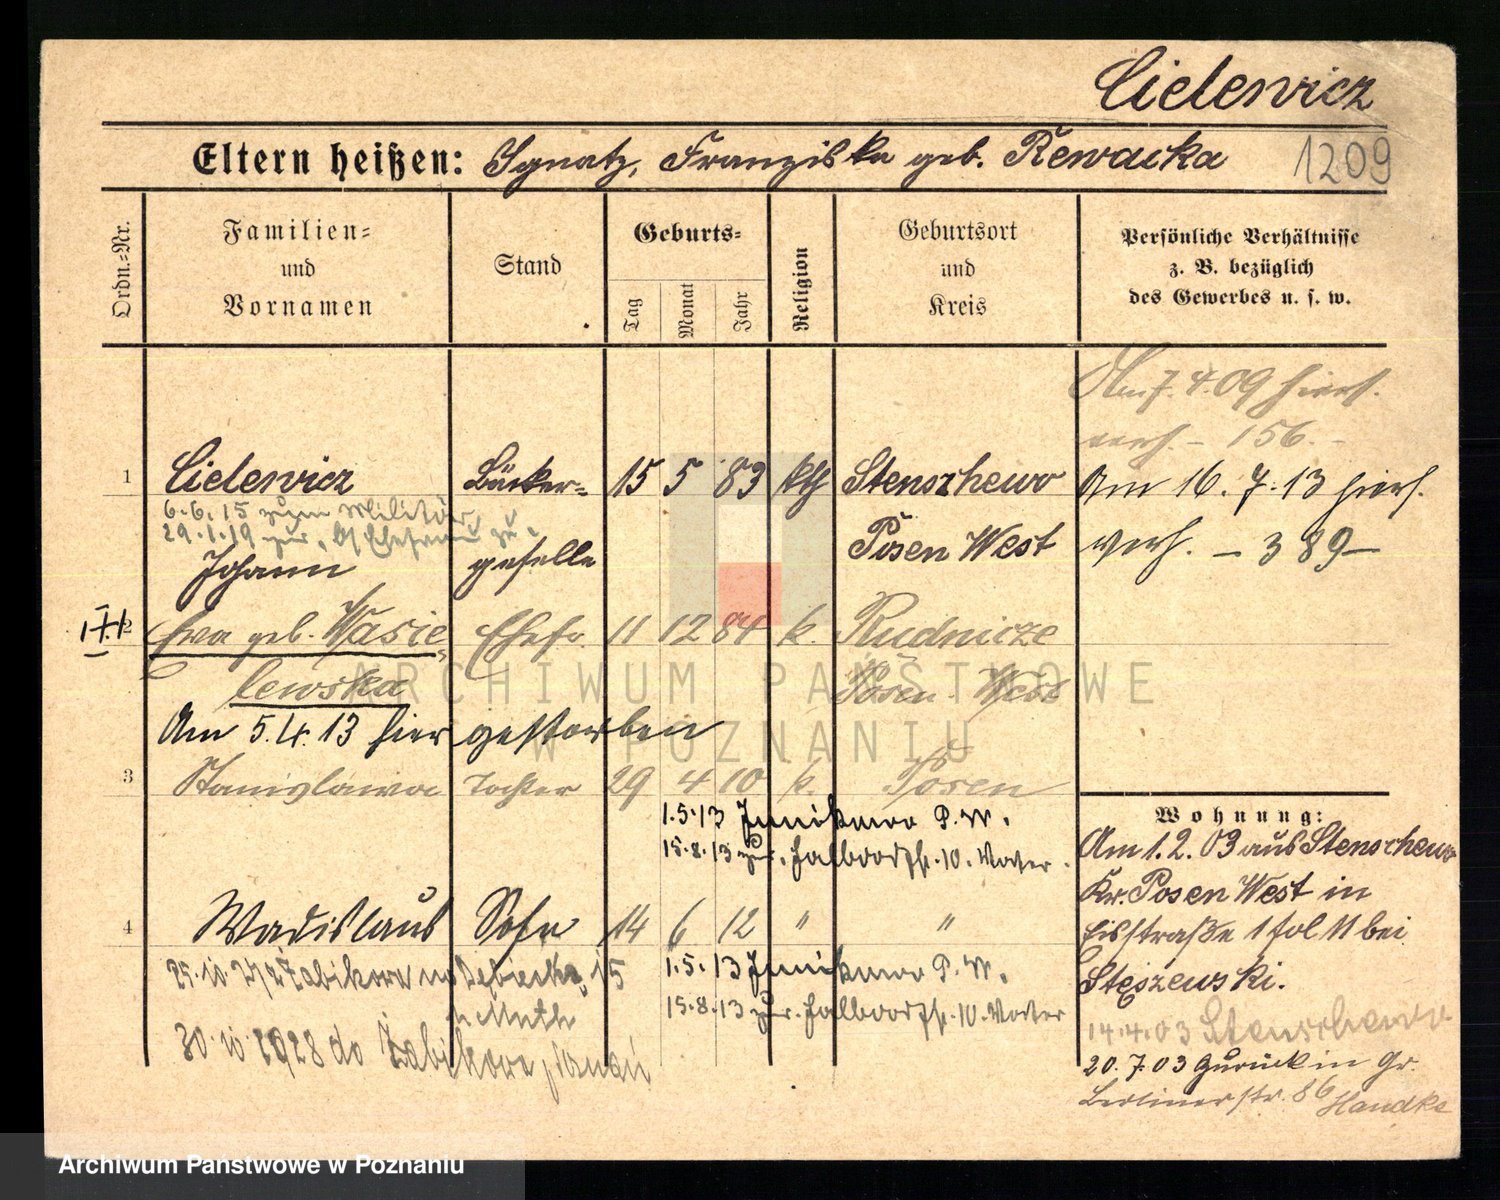 Cielewicz
Eltern heißen: Ignatz, Franziska geb. Rewacka
1209
Ordn.-Nr.
Familien-
und
Vornamen
Stand
Geburts-
Tag
Monat
Jahr
Religion
Geburtsort
und
Kreis
Persönliche Verhältnisse
z. B. bezüglich
des Gewerbes u. s. w.
Am 7.4.09 hiers.
verh. – 156. –
1 Cielewicz Bäcker- 15 5 83 kth Stenschewo
Am 16. 7. 13 hiers.
6.6.15 zum Militär
29.1.19 zur.
Johann geselle Posen West
verh. – 389 –
2 Eva geb. Wasie Ehefr. 11 12 84 k. Rudnicze
lewska Posen West
Am 5.4.13 hier gestorben
3 Stanislawa Tochter 29 4 10 k. Posen
1.5.13 Junikowo P. W.
15.8.13 zur. Halbdorfstr. 10. Vater.
4 Wadislaus Sohn 14 6 12 " "
1.5.13 Junikowo P. W.
15.8.13 zur. Halbdorfstr. 10. Vater
Żabikowa
15
30.10.1928 do Żabikowa
Wohnung:
Am 1.2.03 aus Stenschewo
Kr. Posen West in
Eisstraße 1 fol 11 bei
Stęszewski.
14.4.03 Stenschewo
20.7.03 Zurück in Gr.
Berlinerstr. 86 Handke
ARCHIWUM PAŃSTWOWE
W POZNANIU
Archiwum Państwowe w Poznaniu